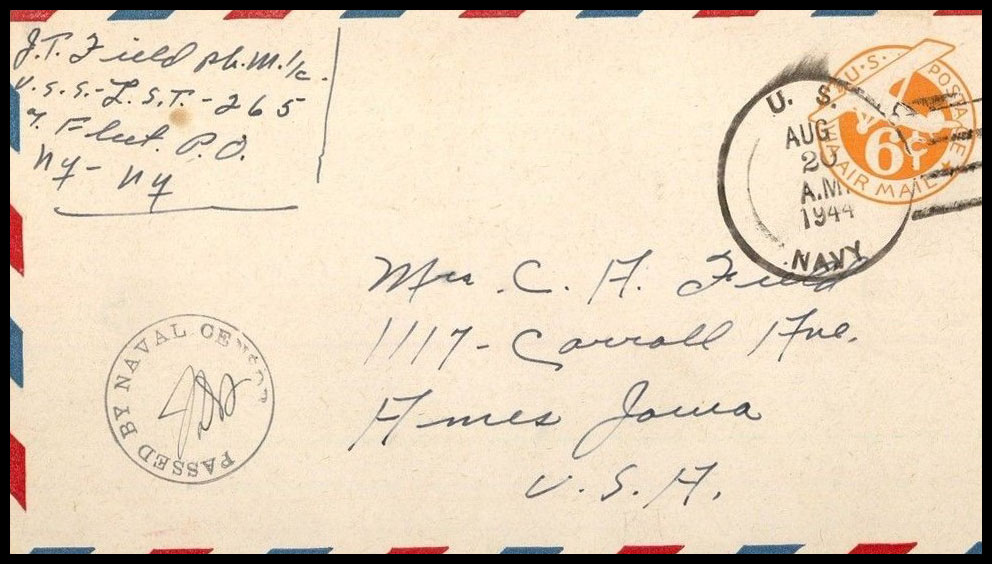 J.T. Field Ph.M.1/c.
U.S.S.-L.S.T.-265
% Fleet. P.O.
NY-NY
U.S. POSTAGE
6¢
VIA AIR MAIL
U. S.
AUG
20
A.M.
1944
NAVY
Mrs. C. A. Field
1117-Carroll Ave.
Ames Iowa
U.S.A.
PASSED BY NAVAL CENSOR